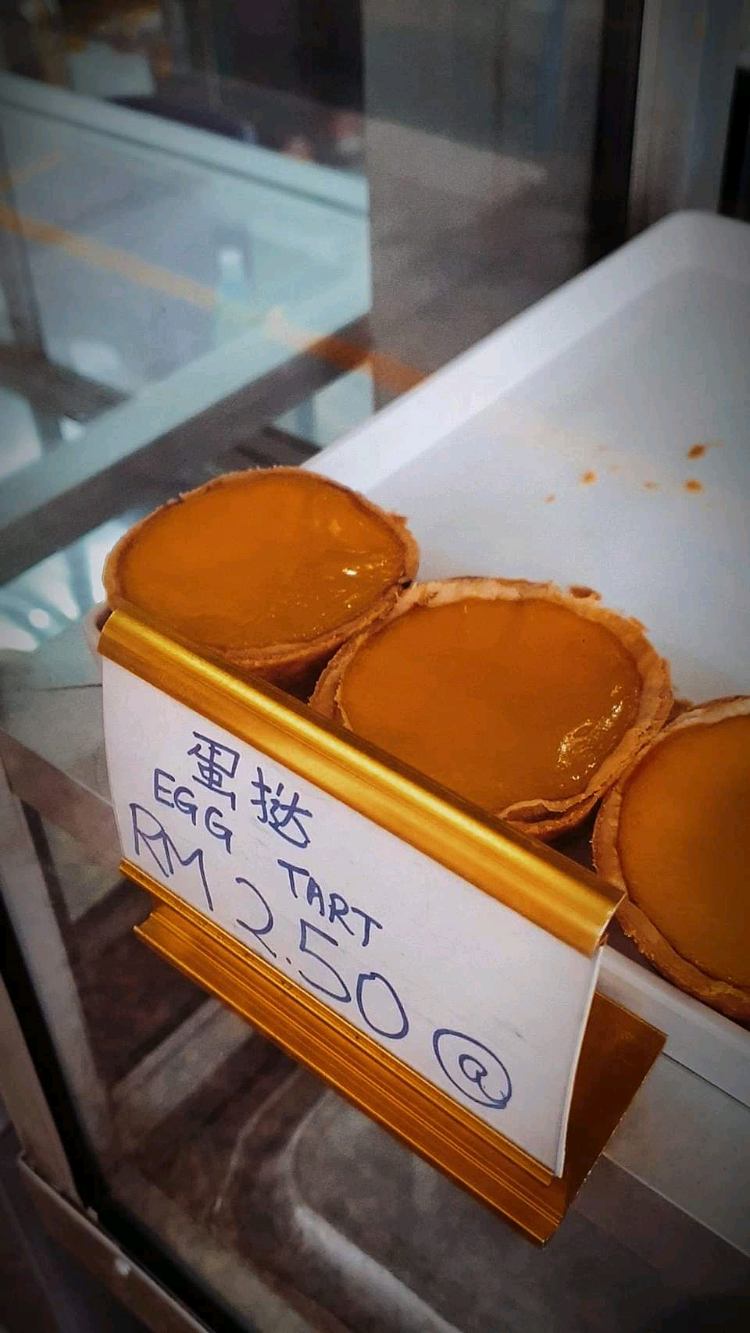 蛋挞
EGG TART
RM 2.50 @